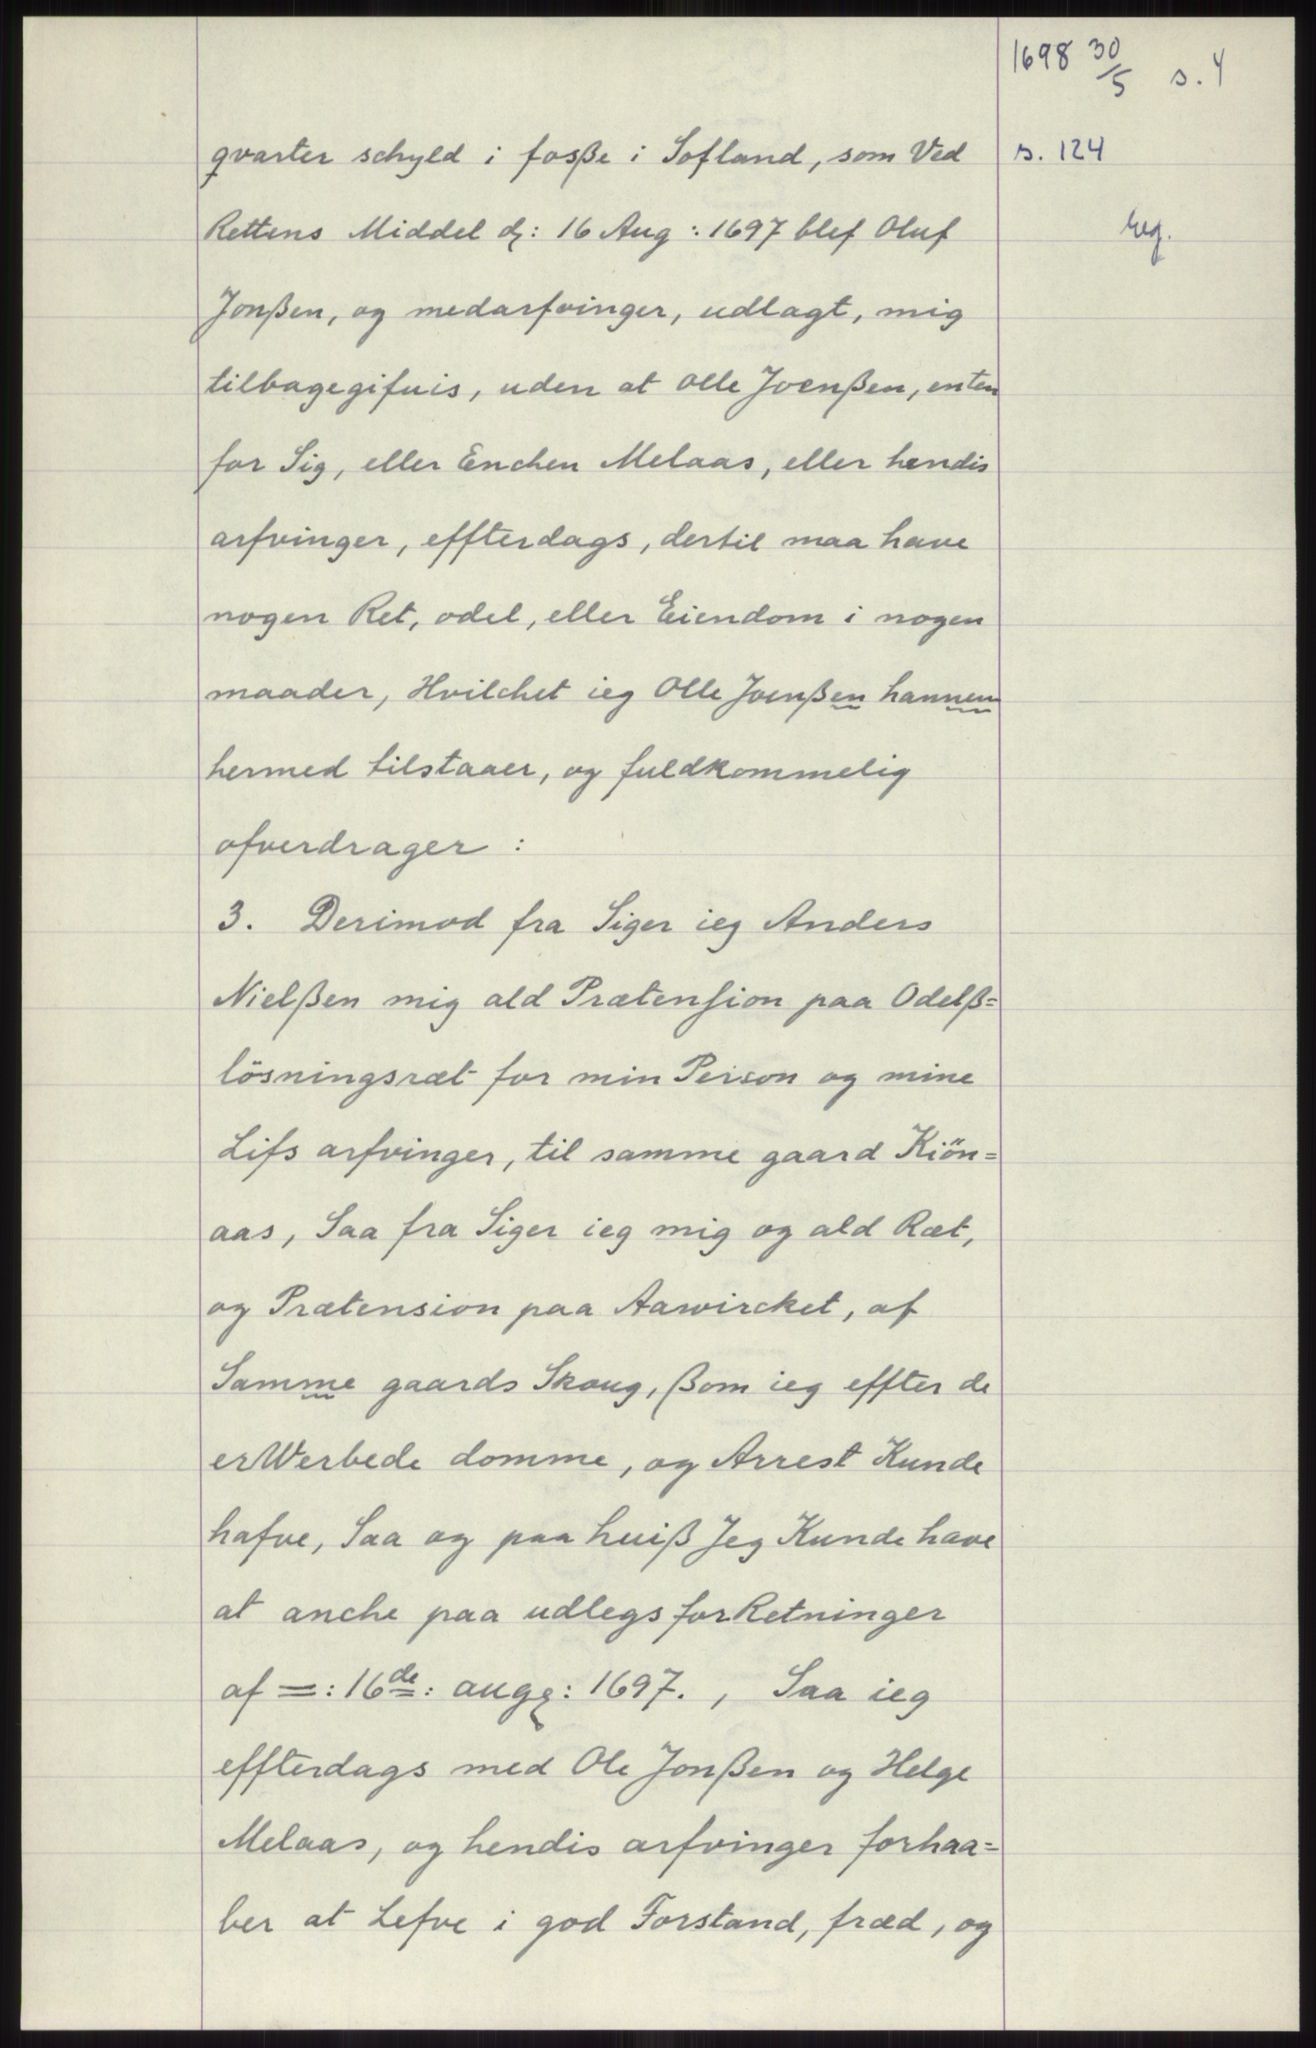 1698 30/5 s. 4
qvarter schyld i foſße i Sofland, som Ved
s. 124
Rettens Middel d: 16 Aug: 1697 blef Oluf
Jonßen, og medarfvinger, udlagt, mig
tilbagegifuis, uden at olle Joenßen, enten
for Sig, eller Enchen Melaas, eller hendis
arfvinger, effterdags, dertil maa have
nogen Ret, odel, eller Eiendom i nogen
maader, Hvilchet ieg Olle Joenßen hannem
hermed tilstaaer, og fuldkommelig
ofverdrager :
3. Derimod fra Siger ieg Anders
Nielßen mig ald Prætenſion paa Odelß=
lösningsræt for min Person og mine
Lifs arfvinger, til samme gaard Kiön=
aas, Saa fra Siger ieg mig og ald Ræt,
og Prætension paa Aawircket, af
Samme gaards Skoug, ßom ieg effter de
erWerbede domme, og Arrest Kunde
hafve, Saa og paa huiß Jeg Kunde have
at anche paa udlegs forRetninger
af =: 16de: augg: 1697. , Saa ieg
effterdags med Ole Jonßen og Helge
Melaas, og hendis arfvinger forhaa=
ber at Lefve i god Forstand, fræd, og